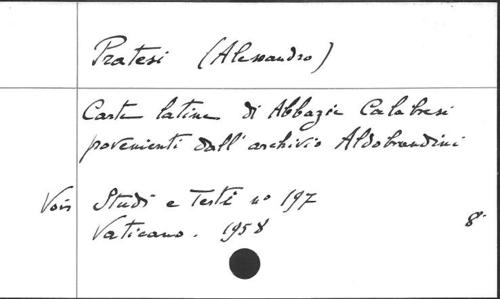 Pratesi (Alessandro)
Carte latine di Abbazie Calabresi
povenienti dall' archivio Aldobrandini
Voir Studi e Testi no 197
Vaticano. 1958 8°